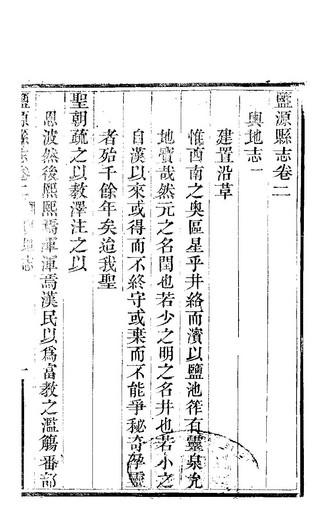 鹽源縣志卷二
輿地志一
建置沿革
惟西南之奧區星乎井絡而濱以鹽池筰有靈泉允
地寶哉然元之名閏也若少之明之名井也若小之
自漢以來或得而不終守或棄而不能爭秘奇孕靈
者殆千餘年矣迨我聖
聖朝疏之以教澤注之以
恩波然後熙熙焉渾渾焉漢民以爲富教之濫觴番部
鹽源縣志卷二
志
一